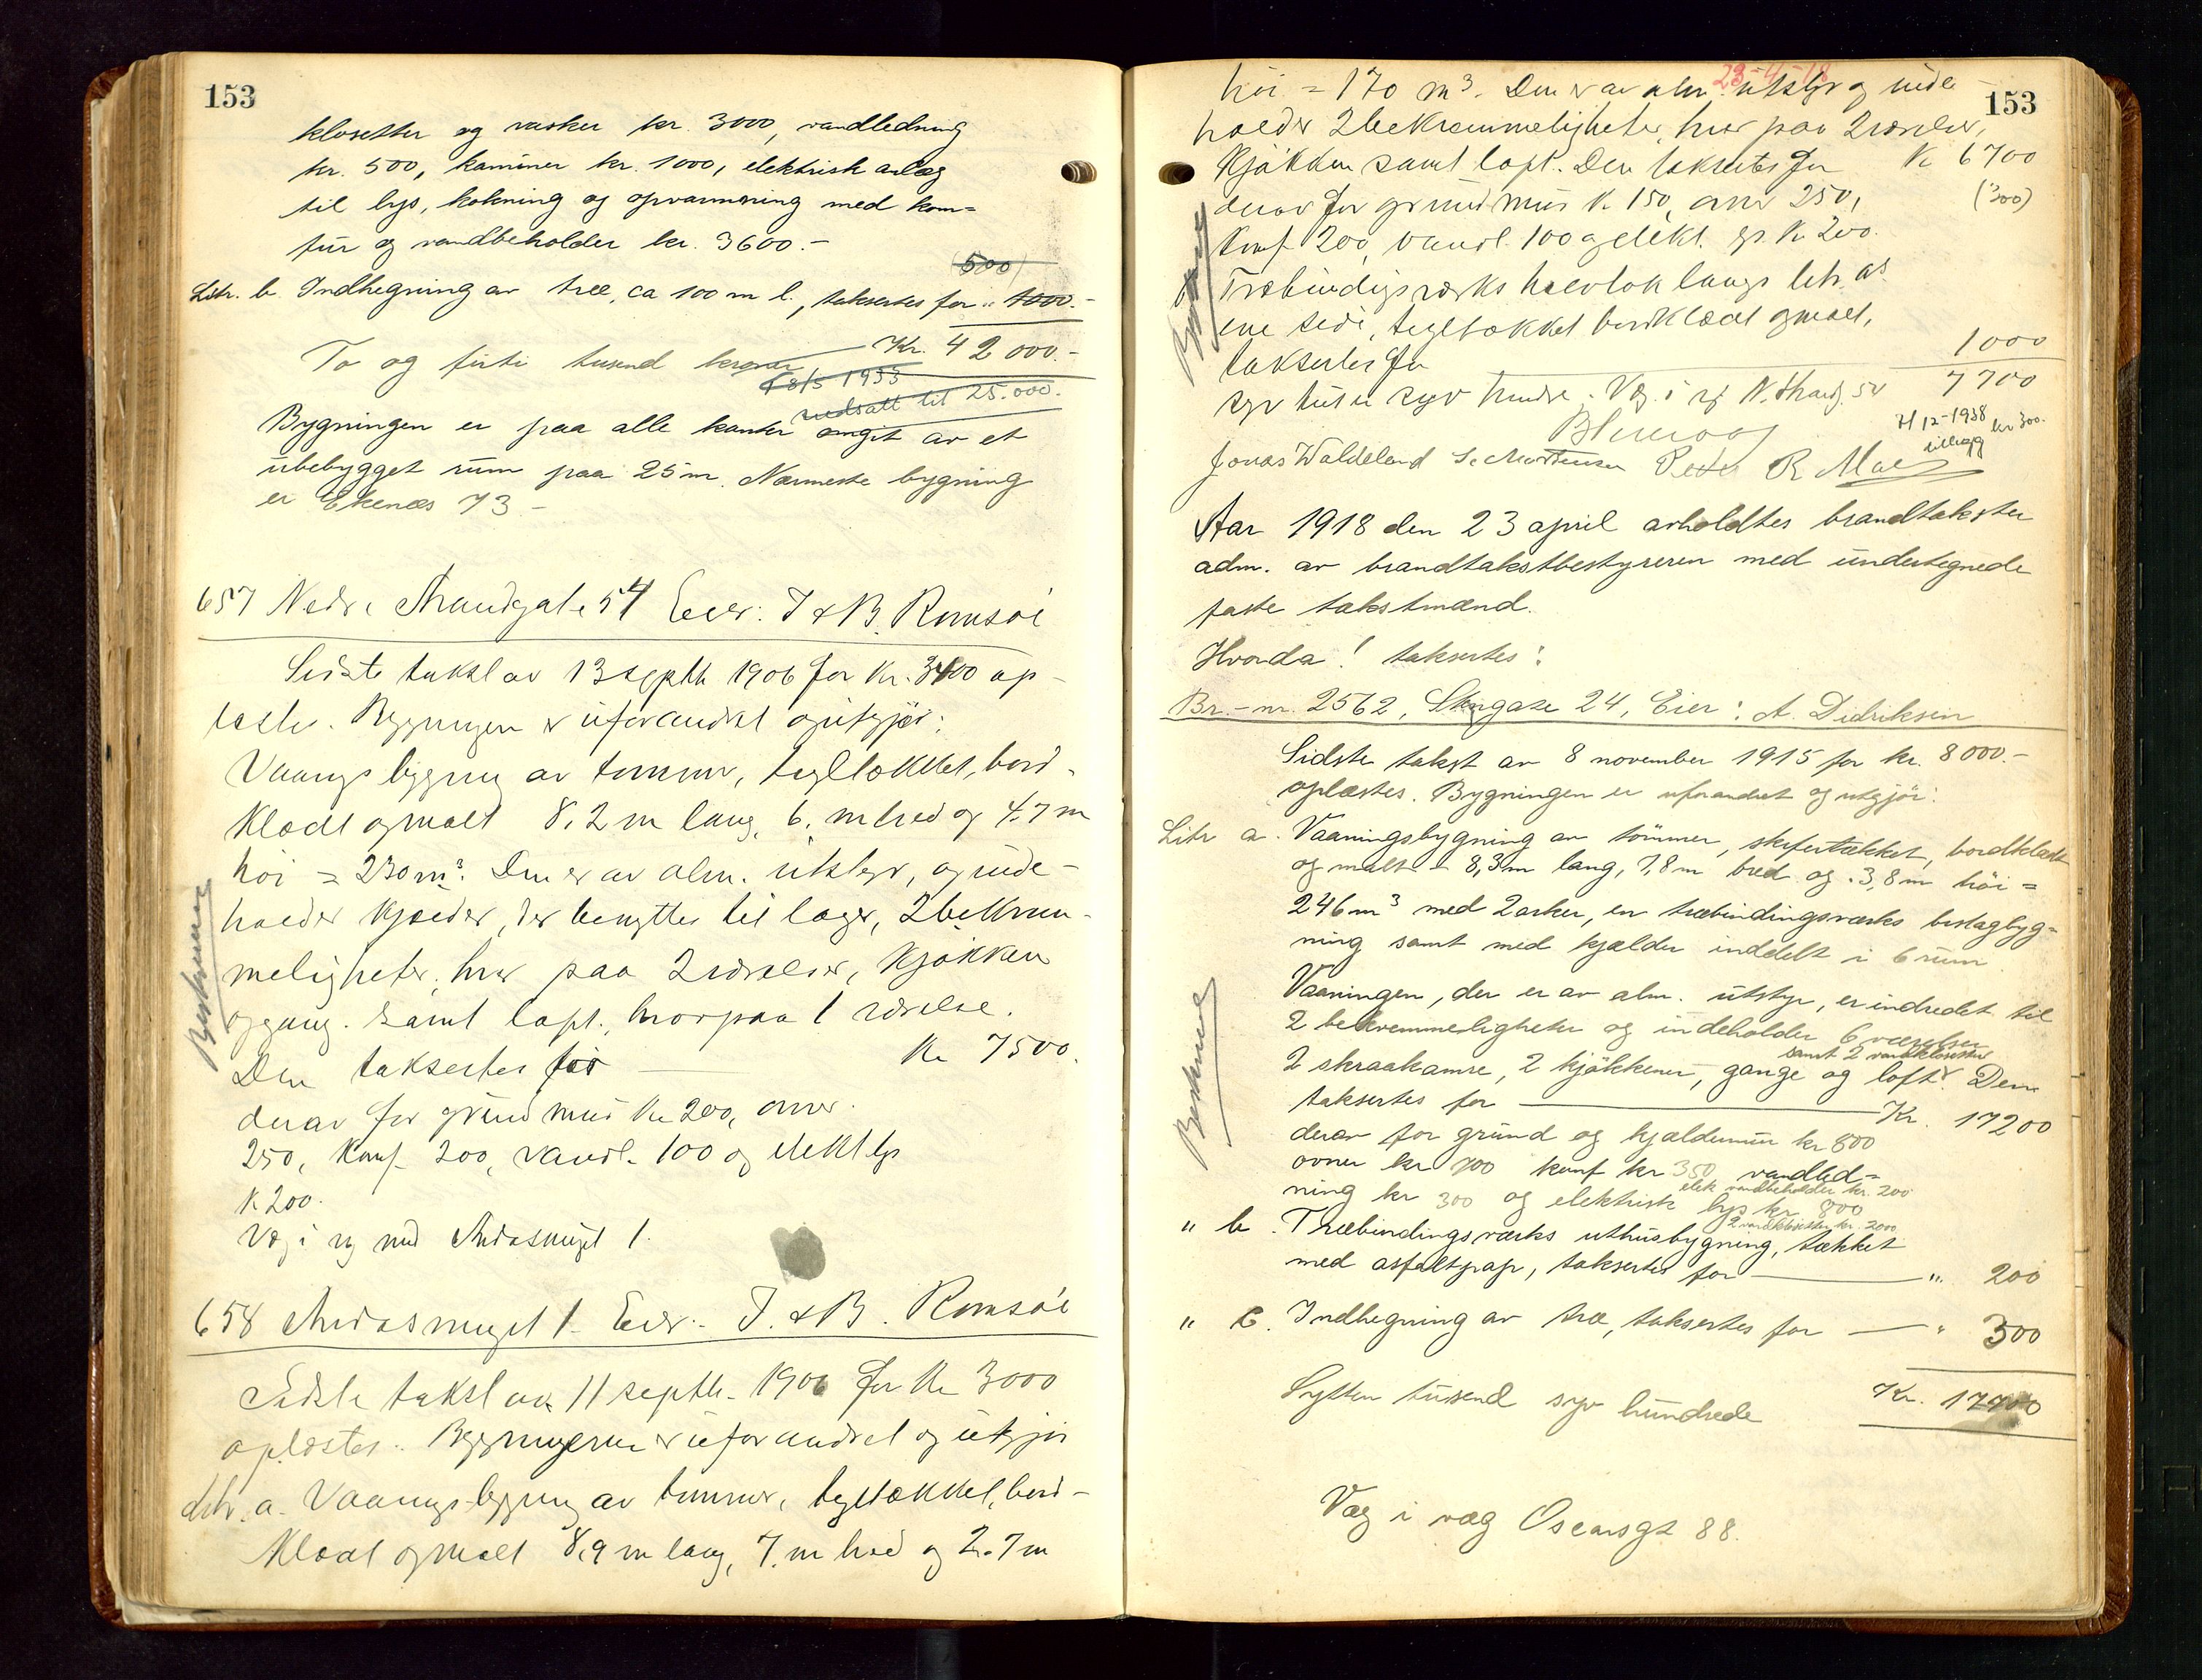 153
klosetter og vasker kr. 3000, vandledning
kr. 500, kaminer kr. 1000, elektrisk anlæg
til lys, kokning og opvarmning med kom=
fur og vandbeholder kr. 3600.-
(500)
Litr. b. Indhegning av træ, ca 100 m l., taksertes for " 1000.-
Kr. 42000.-
To og firti tusend kroner
18/5 1933
nedsatt til 25.000.-
Bygningen er paa alle kanter omgit av et
ubebygget rum paa 25 m. Nærmeste bygning
er Ekenæs 73 -
657 Nedre Strandgate 54 Eier: T & B. Romsøe
Sidste takst av 13 septb 1906 for Kr. 3400 op-
læste. Bygningen er uforandret og utgjør:
Vaaningsbygning av tømmer, tegltækket, bord-
klædt og malt 8,2 m lang, 6, m bred og 4,7 m
høi = 230 m³. Den er av alm. utstyr, og inde-
holder kjælder, der benyttes til lager, 2 bekvem-
meligheter, hver paa 2 værelser, kjøkken
og gang. samt loft, hvorpaa 1 værelse.
Den taksertes for Kr 7500.
derav for grundmur Kr 200, ovner
250, Komf. 200, vandl. 100 og elekt lys
K 200.
Væg i væg med Andasmuget 1.
Beskrives
658 Andasmuget 1. Eier:- T. & B. Romsøe
Sidste takst av 11 septb. 1906 for Kr 3000
oplæstes. Bygningerne er uforandret og utgjør
Litr. a. Vaaningsbygning av tømmer, tegltækket, bord-
klædt og malt 8,9 m lang, 7, m bred og 2,7 m
23-4-18
153
høi = 170 m³. Den er av alm. utstyr og inde
holder 2 bekvemmeligheter, hver paa 2 værelser,
kjøkken samt loft. Den taksertes for Kr 6700
(300)
derav for grundmur K. 150, ovner 250,
Komf 200, vandl. 100 og elekt. lys. Kr 200.
Træbindingsværks halvtak langs litr. a's
ene side, tegltækket bordklædt og malt,
taksertes for 1000
syv tusen syv hundre. Væg i væg N. Strandg. 54 7700
7/12-1938 kr 300.
tillegg
Jonas Waldeland S. Mortensen Peder R. Moe
Aar 1918 den 23 april avholdtes brandtakster
adm. av brandtakstbestyreren med undertegnede
faste takstmænd.
Hvorda! taksertes:
Br.-nr. 2562, Skogate 24, Eier: A. Didriksen
Sidste takst av 8 november 1915 for kr. 8000.-
oplæstes. Bygningen er uforandret og utgjør:
Litr a. Vaaningsbygning av tømmer, skifertækket, bordklædt
og malt - 8,3 m lang, 7,8 m bred og 3,8 m høi =
246 m³ med 2 arker, en træbindingsværks beslagbyg=
ning samt med kjælder inddelt i 6 rum
Vaaningen, der er av alm. utstyr, er indredet til
2 bekvemmeligheter og indeholder 6 værelser
samt 2 vandklosetter
2 skraakamre, 2 kjøkkener, gange og loft. Den
taksertes for Kr. 17200
derav for grund og kjældermur kr 800
ovner kr 700 komf kr 350 vandled=
elek vandbeholder kr. 200
ning kr 300 og elektrisk lys kr 800
2 vandklosetter kr. 2000
Beskrives
" b. Træbindingsværks uthusbygning, tækket
med asfaltpap, taksertes for " 200
" c. Indhegning av træ, taksertes for " 300
Sytten tusend syv hundrede Kr. 17700
Væg i væg Oscarsgt 88.